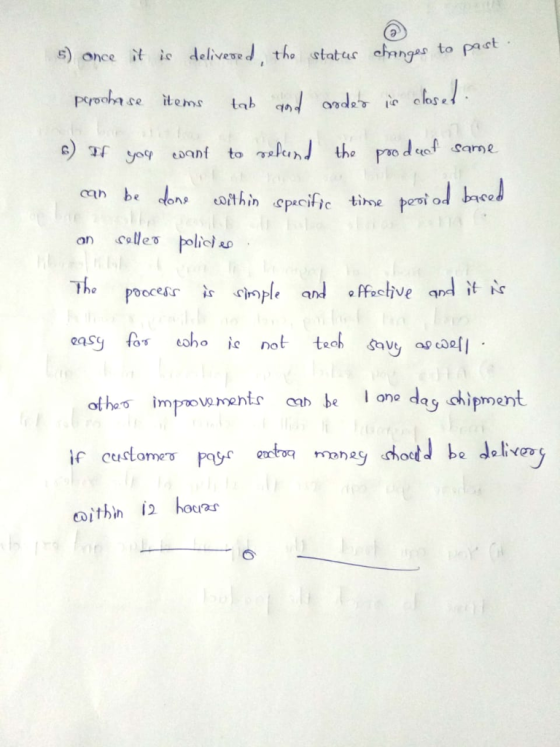 2
5) once it is delivered, the status changes to past
purchase items tab and order is closed.
6) If you want to refund the product same
can be done within specific time period based
on seller policies.
The process is simple and effective and it is
easy for who is not tech savy aswell.
other improvements can be 1 one day shipment
if customer pays extra money should be delivery
within 12 hours